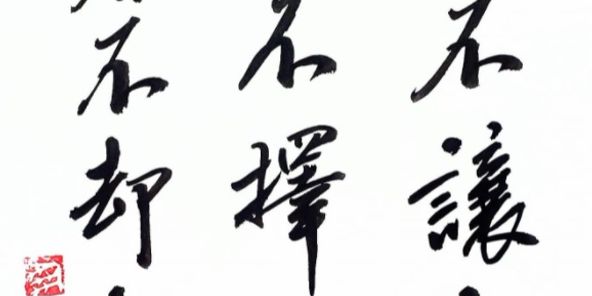 不讓
不擇
不却